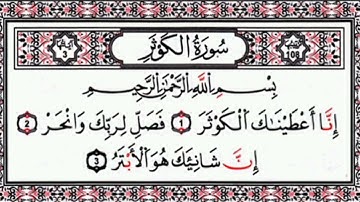 سُورَةُ الْكَوْثَرِ
108
3
بِسْمِ اللَّهِ الرَّحْمَٰنِ الرَّحِيمِ
إِنَّا أَعْطَيْنَٰكَ الْكَوْثَرَ 1 فَصَلِّ لِرَبِّكَ وَانْحَرْ 2
إِنَّ شَانِئَكَ هُوَ الْأَبْتَرُ 3